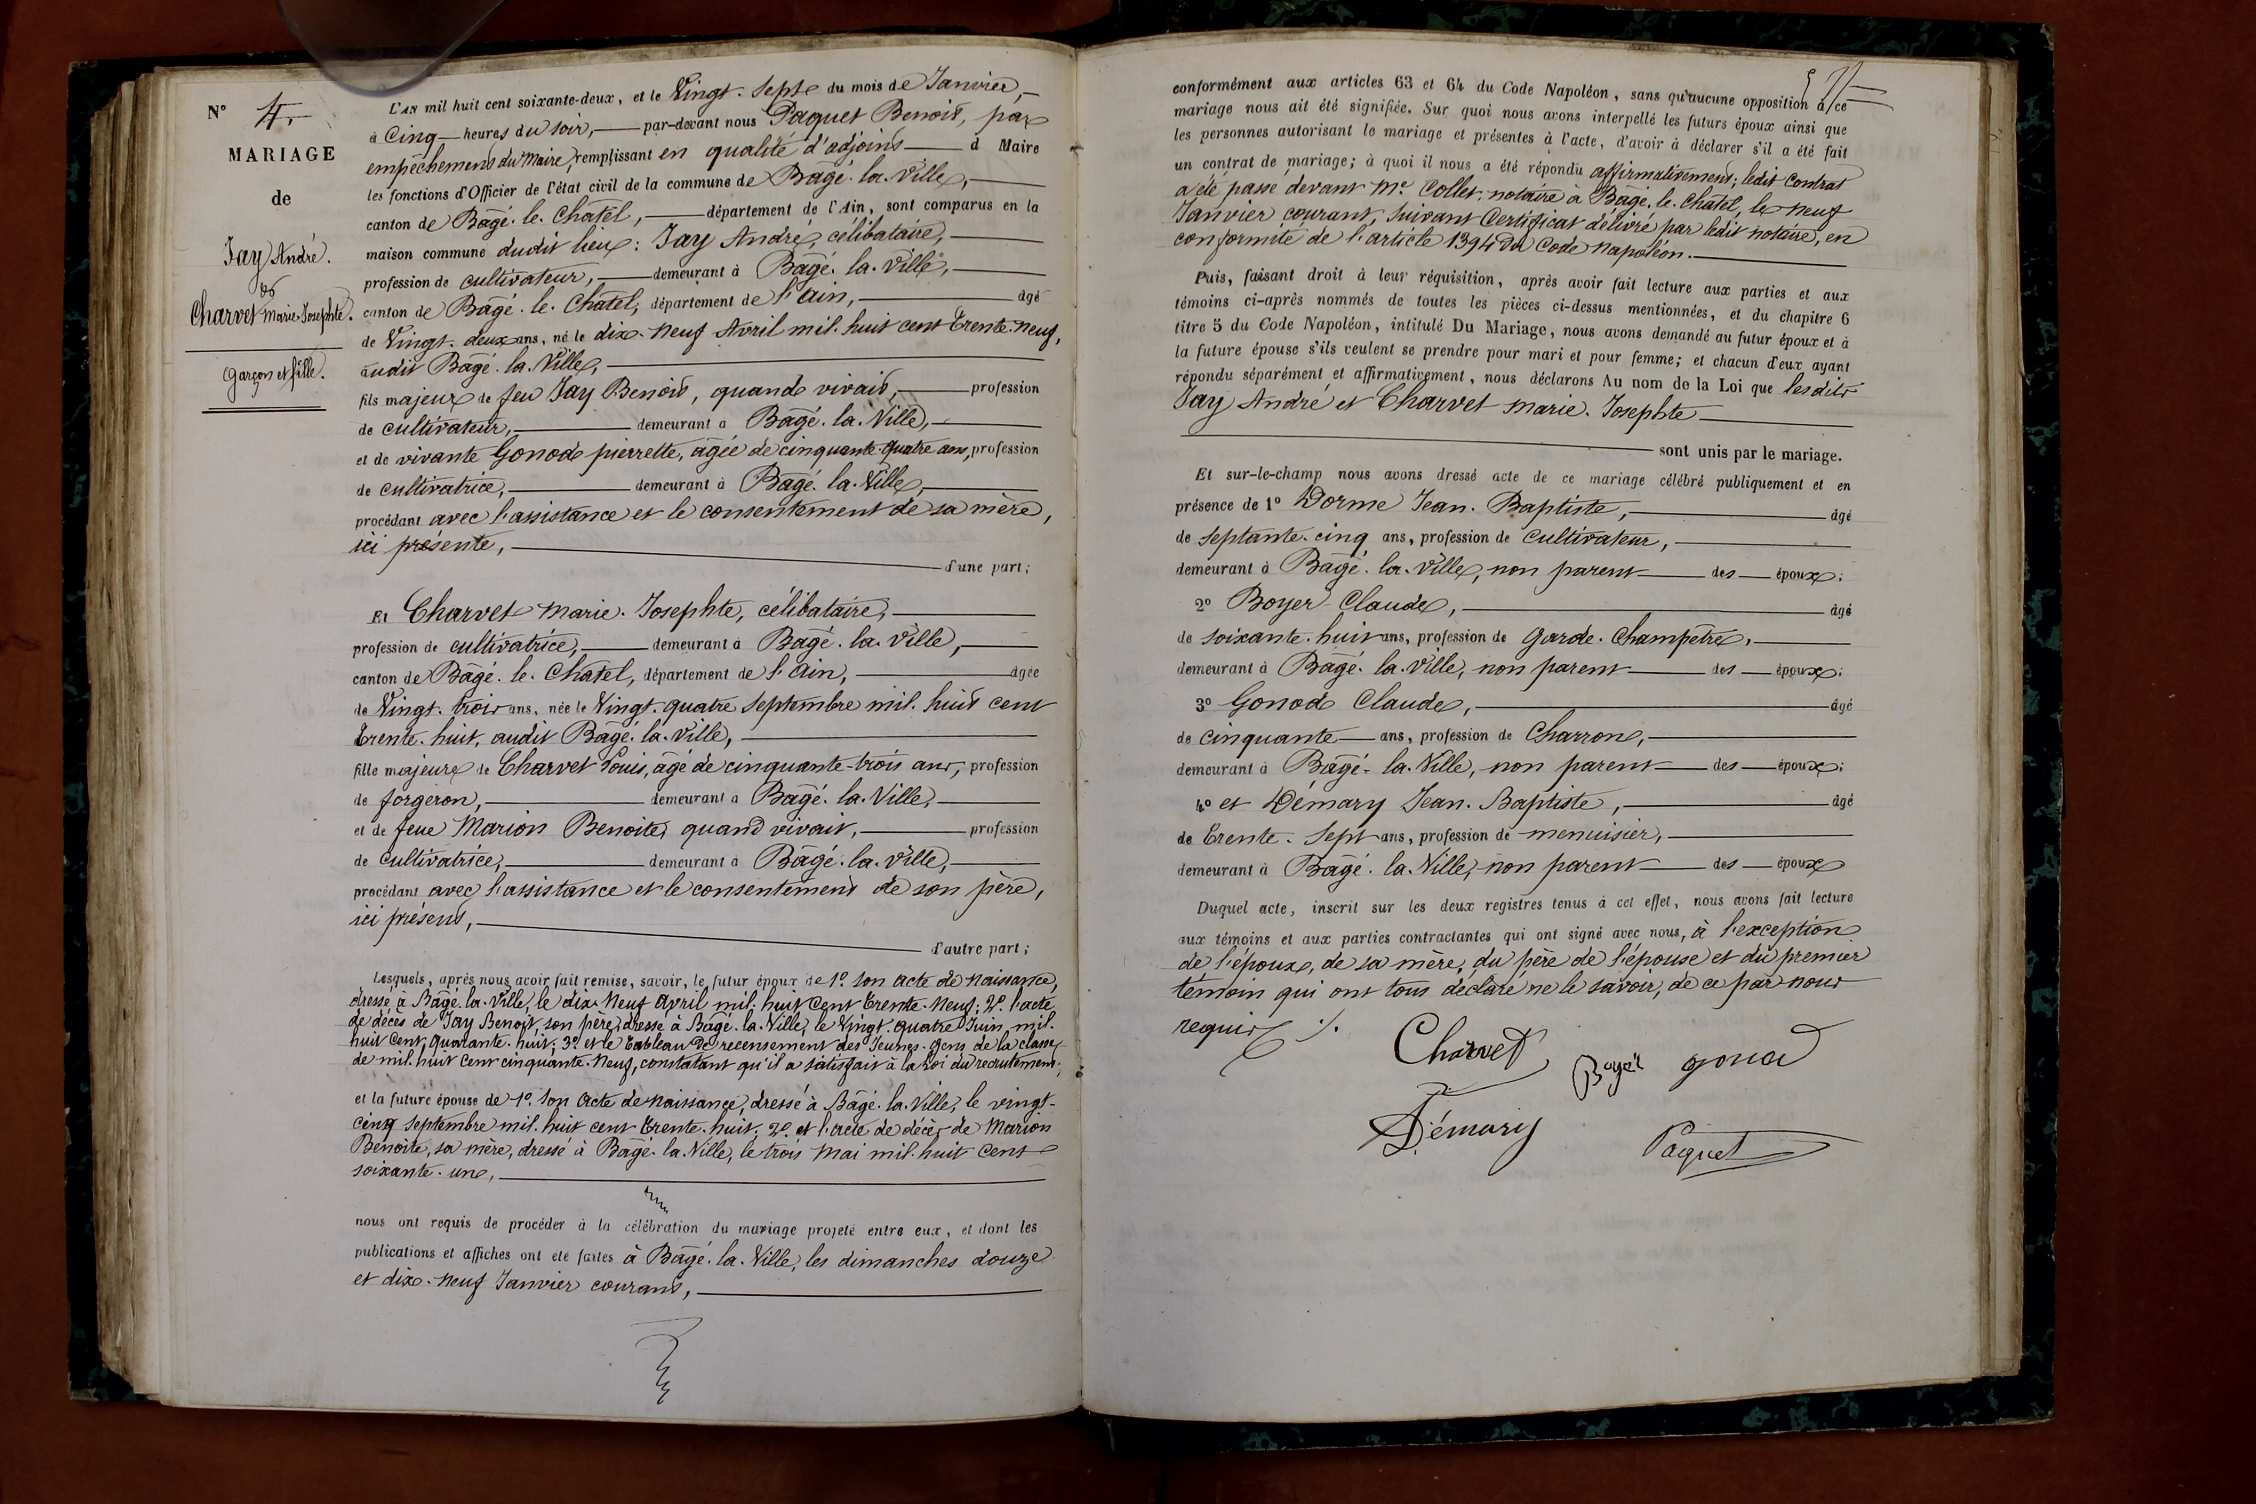 N° 4.
MARIAGE
de
Jay André.
et
Charvet Marie-Josephte.
Garçon et fille.
L'AN mil huit cent soixante-deux, et le Vingt-Sept du mois de Janvier,
à Cinq heures du soir, par-devant nous Paquet Benoit, par
empêchement du Maire, remplissant en qualité d'adjoint d Maire
les fonctions d'Officier de l'état civil de la commune de Bâgé-la-Ville,
canton de Bâgé-le-Châtel, département de l'Ain, sont comparus en la
maison commune dudit lieu: Jay André, célibataire,
profession de cultivateur, demeurant à Bâgé-la-Ville,
canton de Bâgé-le-Châtel, département de l'Ain, âgé
de Vingt-deux ans, né le dix-neuf Avril mil-huit cent trente-neuf,
audit Bâgé-la-Ville,
fils majeur de feu Jay Benoit, quand vivait, profession
de cultivateur, demeurant à Bâgé-la-Ville,
et de vivante Gonod pierrette, âgée de cinquante-quatre ans, profession
de cultivatrice, demeurant à Bâgé-la-Ville,
procédant avec l'assistance et le consentement de sa mère,
ici présente,
d'une part;
Et Charvet Marie-Josephte, célibataire,
profession de cultivatrice, demeurant à Bâgé-la-Ville,
canton de Bâgé-le-Châtel, département de l'Ain, âgée
de Vingt-trois ans, née le Vingt-quatre Septembre mil-huit cent
trente-huit, audit Bâgé-la-Ville,
fille majeure de Charvet Louis, âgé de cinquante-trois ans, profession
de forgeron, demeurant à Bâgé-la-Ville,
et de feue Marion Benoite, quand vivait, profession
de cultivatrice, demeurant à Bâgé-la-Ville,
procédant avec l'assistance et le consentement de son père,
ici présent,
d'autre part;
Lesquels, après nous avoir fait remise, savoir, le futur époux de 1° Son acte de naissance,
dressé à Bâgé-la-Ville, le dix-Neuf Avril mil-huit Cent trente-Neuf; 2° l'acte
de décès de Jay Benoit, son père, dressé à Bâgé-la-Ville, le Vingt-quatre Juin mil-
huit Cent quarante-huit; 3° et le tableau de recensement des Jeunes-gens de la classe
de mil-huit cent cinquante-Neuf, constatant qu'il a satisfait à la loi du recrutement;
et la future épouse de 1° Son Acte de naissance, dressé à Bâgé-la-Ville, le vingt-
cinq Septembre mil-huit cent trente-huit; 2° et l'acte de décès de Marion
Benoite, sa mère, dressé à Bâgé-la-Ville, le trois Mai mil-huit Cent
soixante-une,
nous ont requis de procéder à la célébration du mariage projeté entre eux, et dont les
publications et affiches ont été faites à Bâgé-la-Ville, les dimanches douze
et dix-neuf Janvier courant,
conformément aux articles 63 et 64 du Code Napoléon, sans qu'aucune opposition à ce
mariage nous ait été signifiée. Sur quoi nous avons interpellé les futurs époux ainsi que
les personnes autorisant le mariage et présentes à l'acte, d'avoir à déclarer s'il a été fait
un contrat de mariage; à quoi il nous a été répondu affirmativement; ledit Contrat
a été passé devant Me Collet, notaire à Bâgé-le-Châtel, le neuf
Janvier courant, suivant Certificat délivré par ledit notaire, en
conformité de l'article 1394 du Code Napoléon.
Puis, faisant droit à leur réquisition, après avoir fait lecture aux parties et aux
témoins ci-après nommés de toutes les pièces ci-dessus mentionnées, et du chapitre 6
titre 5 du Code Napoléon, intitulé Du Mariage, nous avons demandé au futur époux et à
la future épouse s'ils veulent se prendre pour mari et pour femme; et chacun d'eux ayant
répondu séparément et affirmativement, nous déclarons Au nom de la Loi que lesdits
Jay André et Charvet Marie-Josephte
sont unis par le mariage.
Et sur-le-champ nous avons dressé acte de ce mariage célébré publiquement et en
présence de 1° Dorme Jean-Baptiste, âgé
de septante-cinq ans, profession de cultivateur,
demeurant à Bâgé-la-Ville, non parent des époux;
2° Boyer Claude, âgé
de soixante-huit ans, profession de Garde-Champêtre,
demeurant à Bâgé-la-Ville, non parent des époux;
3° Gonod Claude, âgé
de cinquante ans, profession de Charron,
demeurant à Bâgé-la-Ville, non parent des époux;
4° et Démary Jean-Baptiste, âgé
de trente-Sept ans, profession de menuisier,
demeurant à Bâgé-la-Ville, non parent des époux
Duquel acte, inscrit sur les deux registres tenus à cet effet, nous avons fait lecture
aux témoins et aux parties contractantes qui ont signé avec nous, à l'exception
de l'époux, de sa mère, du père de l'épouse et du premier
témoin qui ont tous déclaré ne le savoir, de ce par nous
requis ./.
Charvet Boyer gonod
Démary Paquet